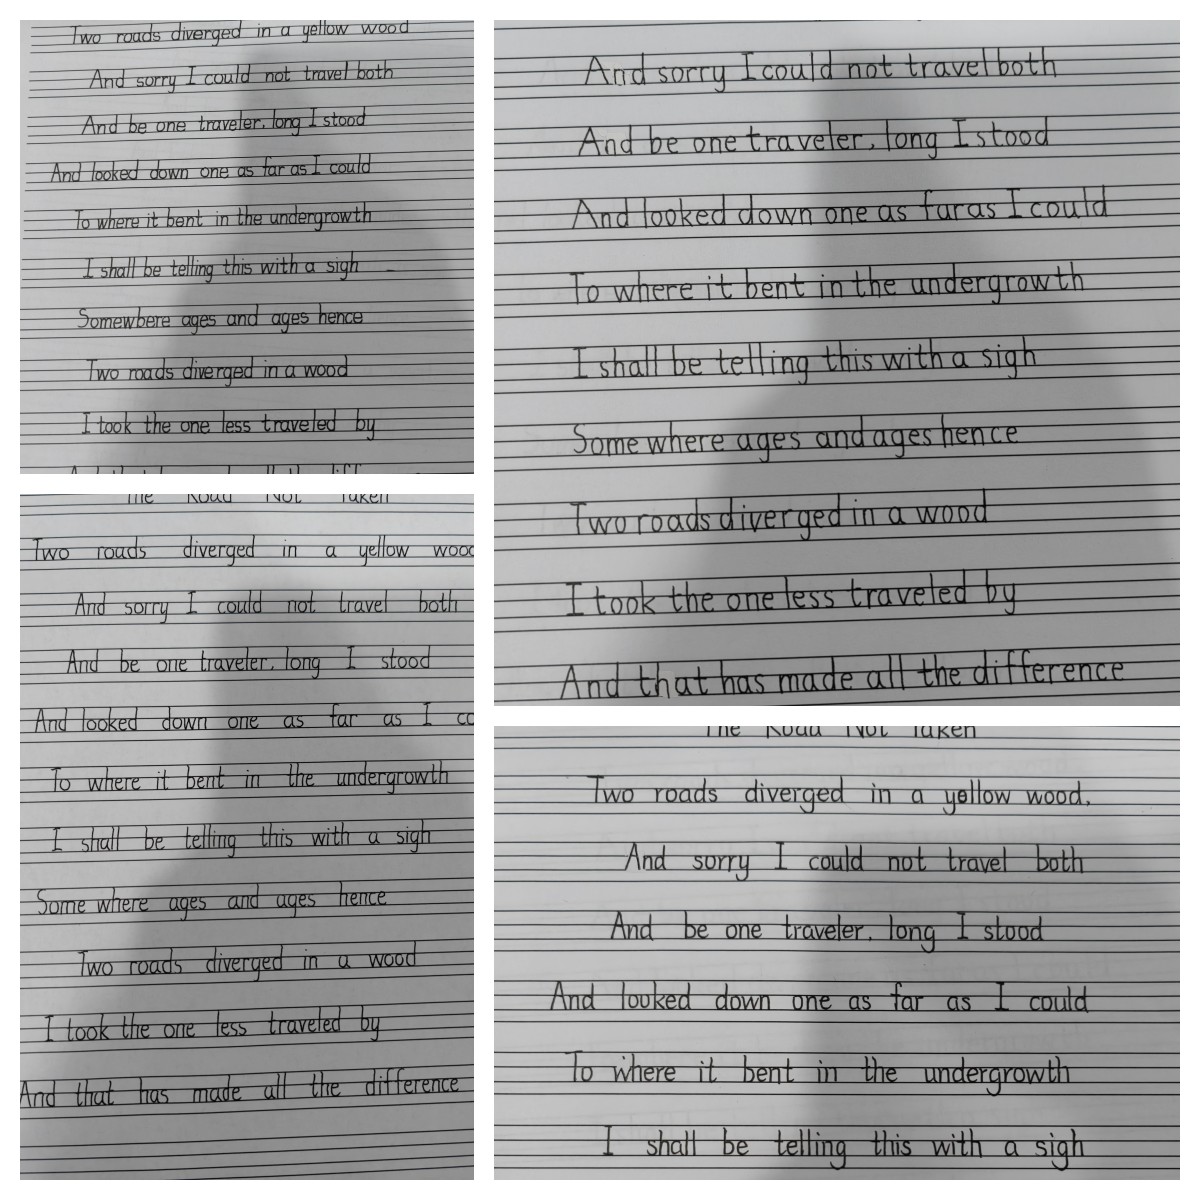 Two roads diverged in a yellow wood
And sorry I could not travel both
And be one traveler, long I stood
And looked down one as far as I could
To where it bent in the undergrowth
I shall be telling this with a sigh
Somewbere ages and ages hence
Two roads diverged in a wood
I took the one less traveled by
And sorry I could not travel both
And be one traveler, long I stood
And looked down one as far as I could
To where it bent in the undergrowth
I shall be telling this with a sigh
Some where ages and ages hence
Two roads diverged in a wood
I took the one less traveled by
And that has made all the difference
The Road Not Taken
Two roads diverged in a yellow wood
And sorry I could not travel both
And be one traveler, long I stood
And looked down one as far as I co
To where it bent in the undergrowth
I shall be telling this with a sigh
Some where ages and ages hence
Two roads diverged in a wood
I took the one less traveled by
And that has made all the difference
The Road Not Taken
Two roads diverged in a yellow wood,
And sorry I could not travel both
And be one traveler, long I stood
And looked down one as far as I could
To where it bent in the undergrowth
I shall be telling this with a sigh